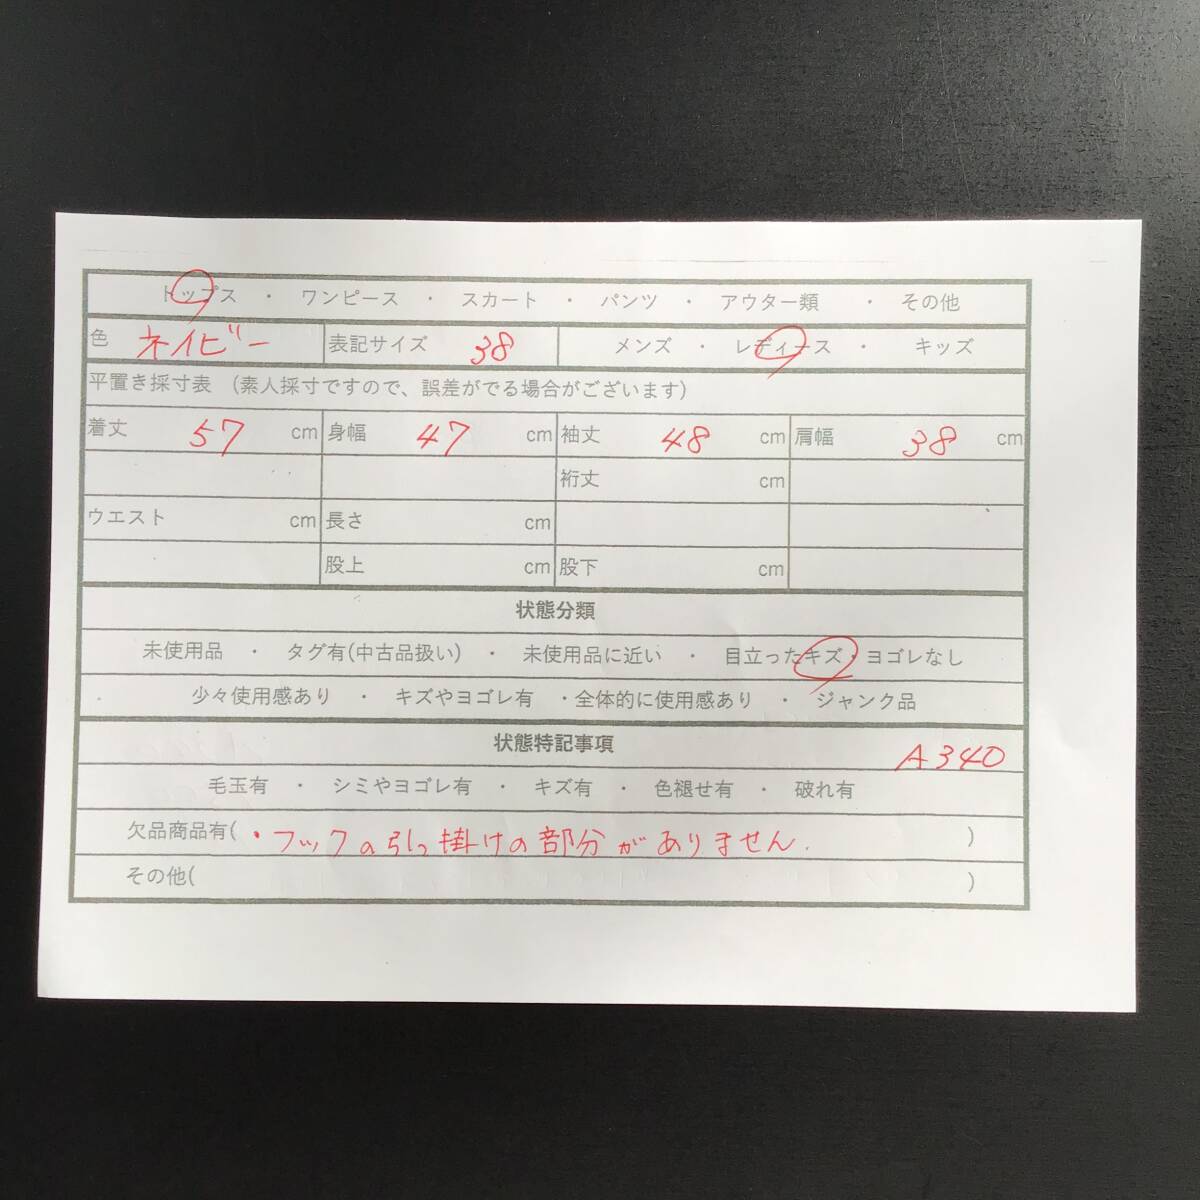 トップス ・ ワンピース ・ スカート ・ パンツ ・ アウター類 ・ その他
色 ネイビー 表記サイズ 38 メンズ ・ レディース ・ キッズ
平置き採寸表 （素人採寸ですので、誤差がでる場合がございます）
着丈 57 cm 身幅 47 cm 袖丈 48 cm 肩幅 38 cm
裄丈 cm
ウエスト cm 長さ cm
股上 cm 股下 cm
状態分類
未使用品 ・ タグ有(中古品扱い) ・ 未使用品に近い ・ 目立ったキズ・ヨゴレなし
少々使用感あり ・ キズやヨゴレ有 ・全体的に使用感あり ・ ジャンク品
状態特記事項 A340
毛玉有 ・ シミやヨゴレ有 ・ キズ有 ・ 色褪せ有 ・ 破れ有
欠品商品有( ・フックの引っ掛けの部分がありません. )
その他( )